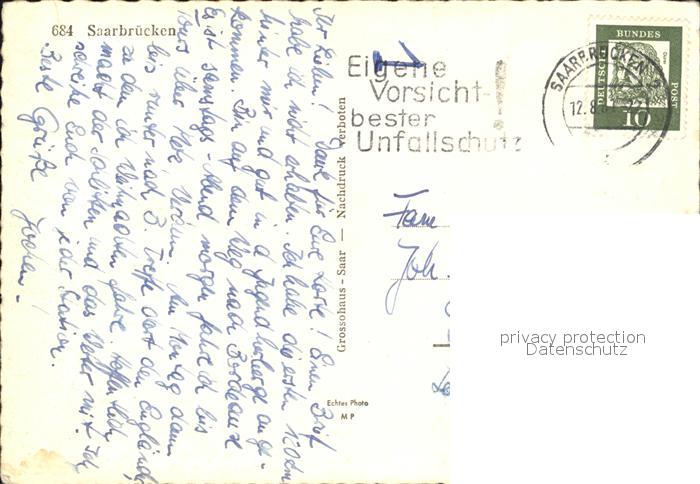 684 Saarbrücken
Ihr Lieben! Dank für Eure Karte! Einen Brief
habe ich nicht erhalten. Ich habe die ersten 120 km
hinter mir und gut in d. Jugendherberge ange-
kommen. Bin auf dem Weg nach Bordeaux
Es ist samstags-abend morgen fahre ich bis
über Metz Verdun. Am Montag dann
bis runter nach B. Treffe dort den Engländer
zu dem ich Weihnachten fahre. Hoffentlich
macht der und das Wetter mit. Ich
schreibe Euch von jeder Station.
Beste Grüße Jochen!
Grossohaus - Saar — Nachdruck verboten
Echtes Photo
M P
Eigene
Vorsicht-
bester
Unfallschutz
!
SAARBRÜCKEN
12.8
DEUTSCHE BUNDES POST
10
Fam
Joh.
privacy protection
Datenschutz